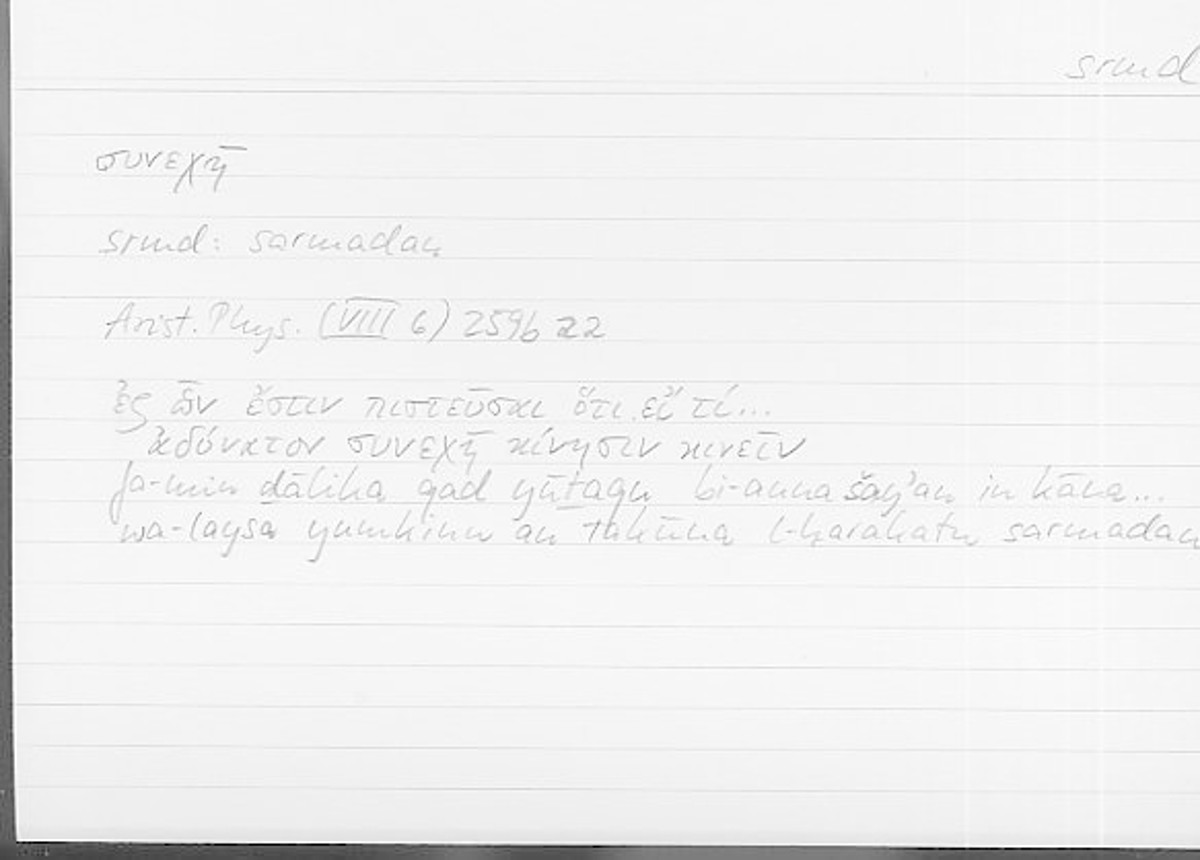 srmd
συνεχῆ
srmd: sarmadan
Arist. Phys. (VIII 6) 259b 22
ἐξ ὧν ἔστιν πιστεῦσαι ὅτι εἴ τί...
ἀδύνατον συνεχῆ κίνησιν κινεῖν
fa-min ḏālika qad yūṯaqu bi-anna šayʾan in kāna...
wa-laysa yumkinu an takūna l-ḥarakatu sarmadan